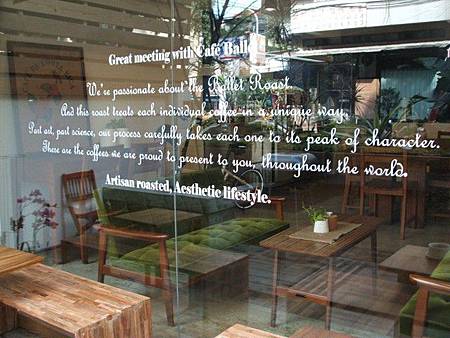 Great meeting with Café Ballet
We're passionate about the Ballet Roast.
And this roast treats each individual coffee in a unique way.
Part art, part science, our process carefully takes each one to its peak of character.
These are the coffees we are proud to present to you, throughout the world.
Artisan roasted, Aesthetic lifestyle.